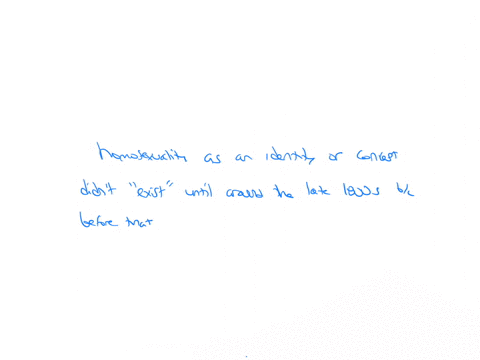 homosexuality as an identity or concept
didn't "exist" until around the late 1800s b/c
before that